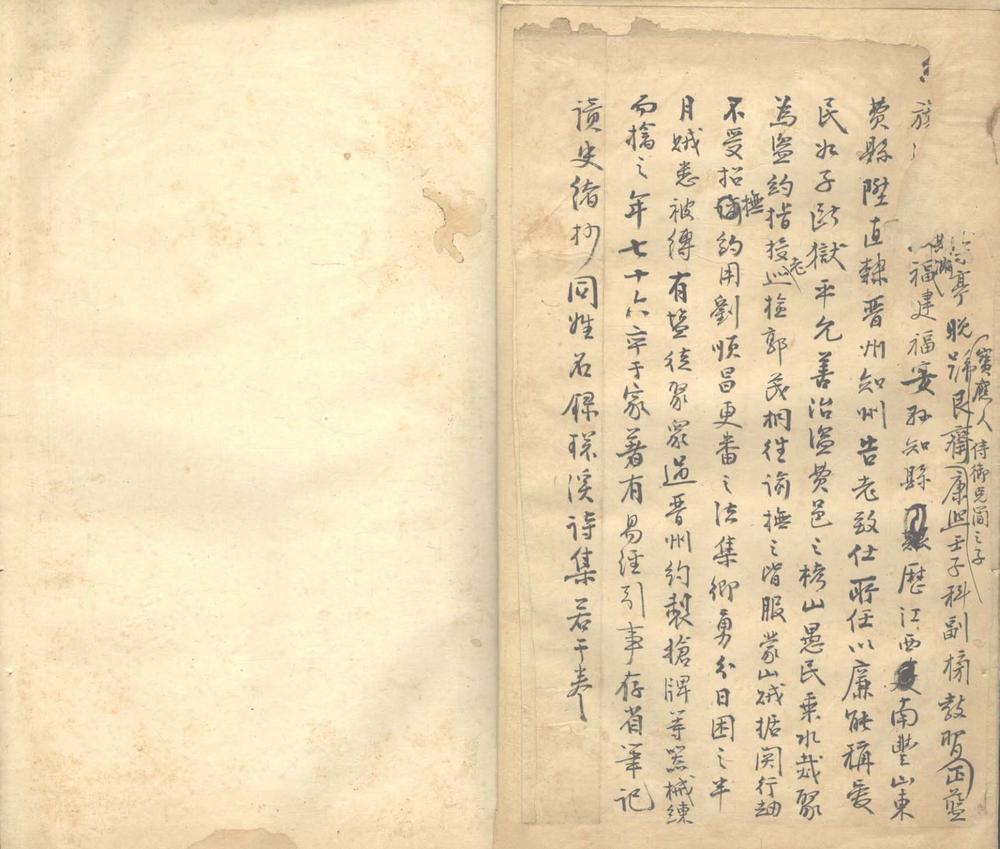 亭晚號艮齋康熙壬子科副榜教習正藍
寶應人侍御克簡之子
其滿
福建福安知縣歷江西南豐山東
費縣陞直隸晋州知州告老致仕所任以廉能稱愛
民如子斷獄平允善治盜費邑之榜山愚民乘水烖聚
為盜約指授巡檢郭茂桐往諭撫之皆服蒙山贼据関行刼
老
不受招撫約用劉順昌更番之法集鄉勇分日困之半
月贼悉被縛有塩徒聚衆過晋州約製搶牌等器械練
而擒之年七十六卒于家著有易經引事存省筆記
讀史緒抄同姓名錄琛溪詩集若干卷